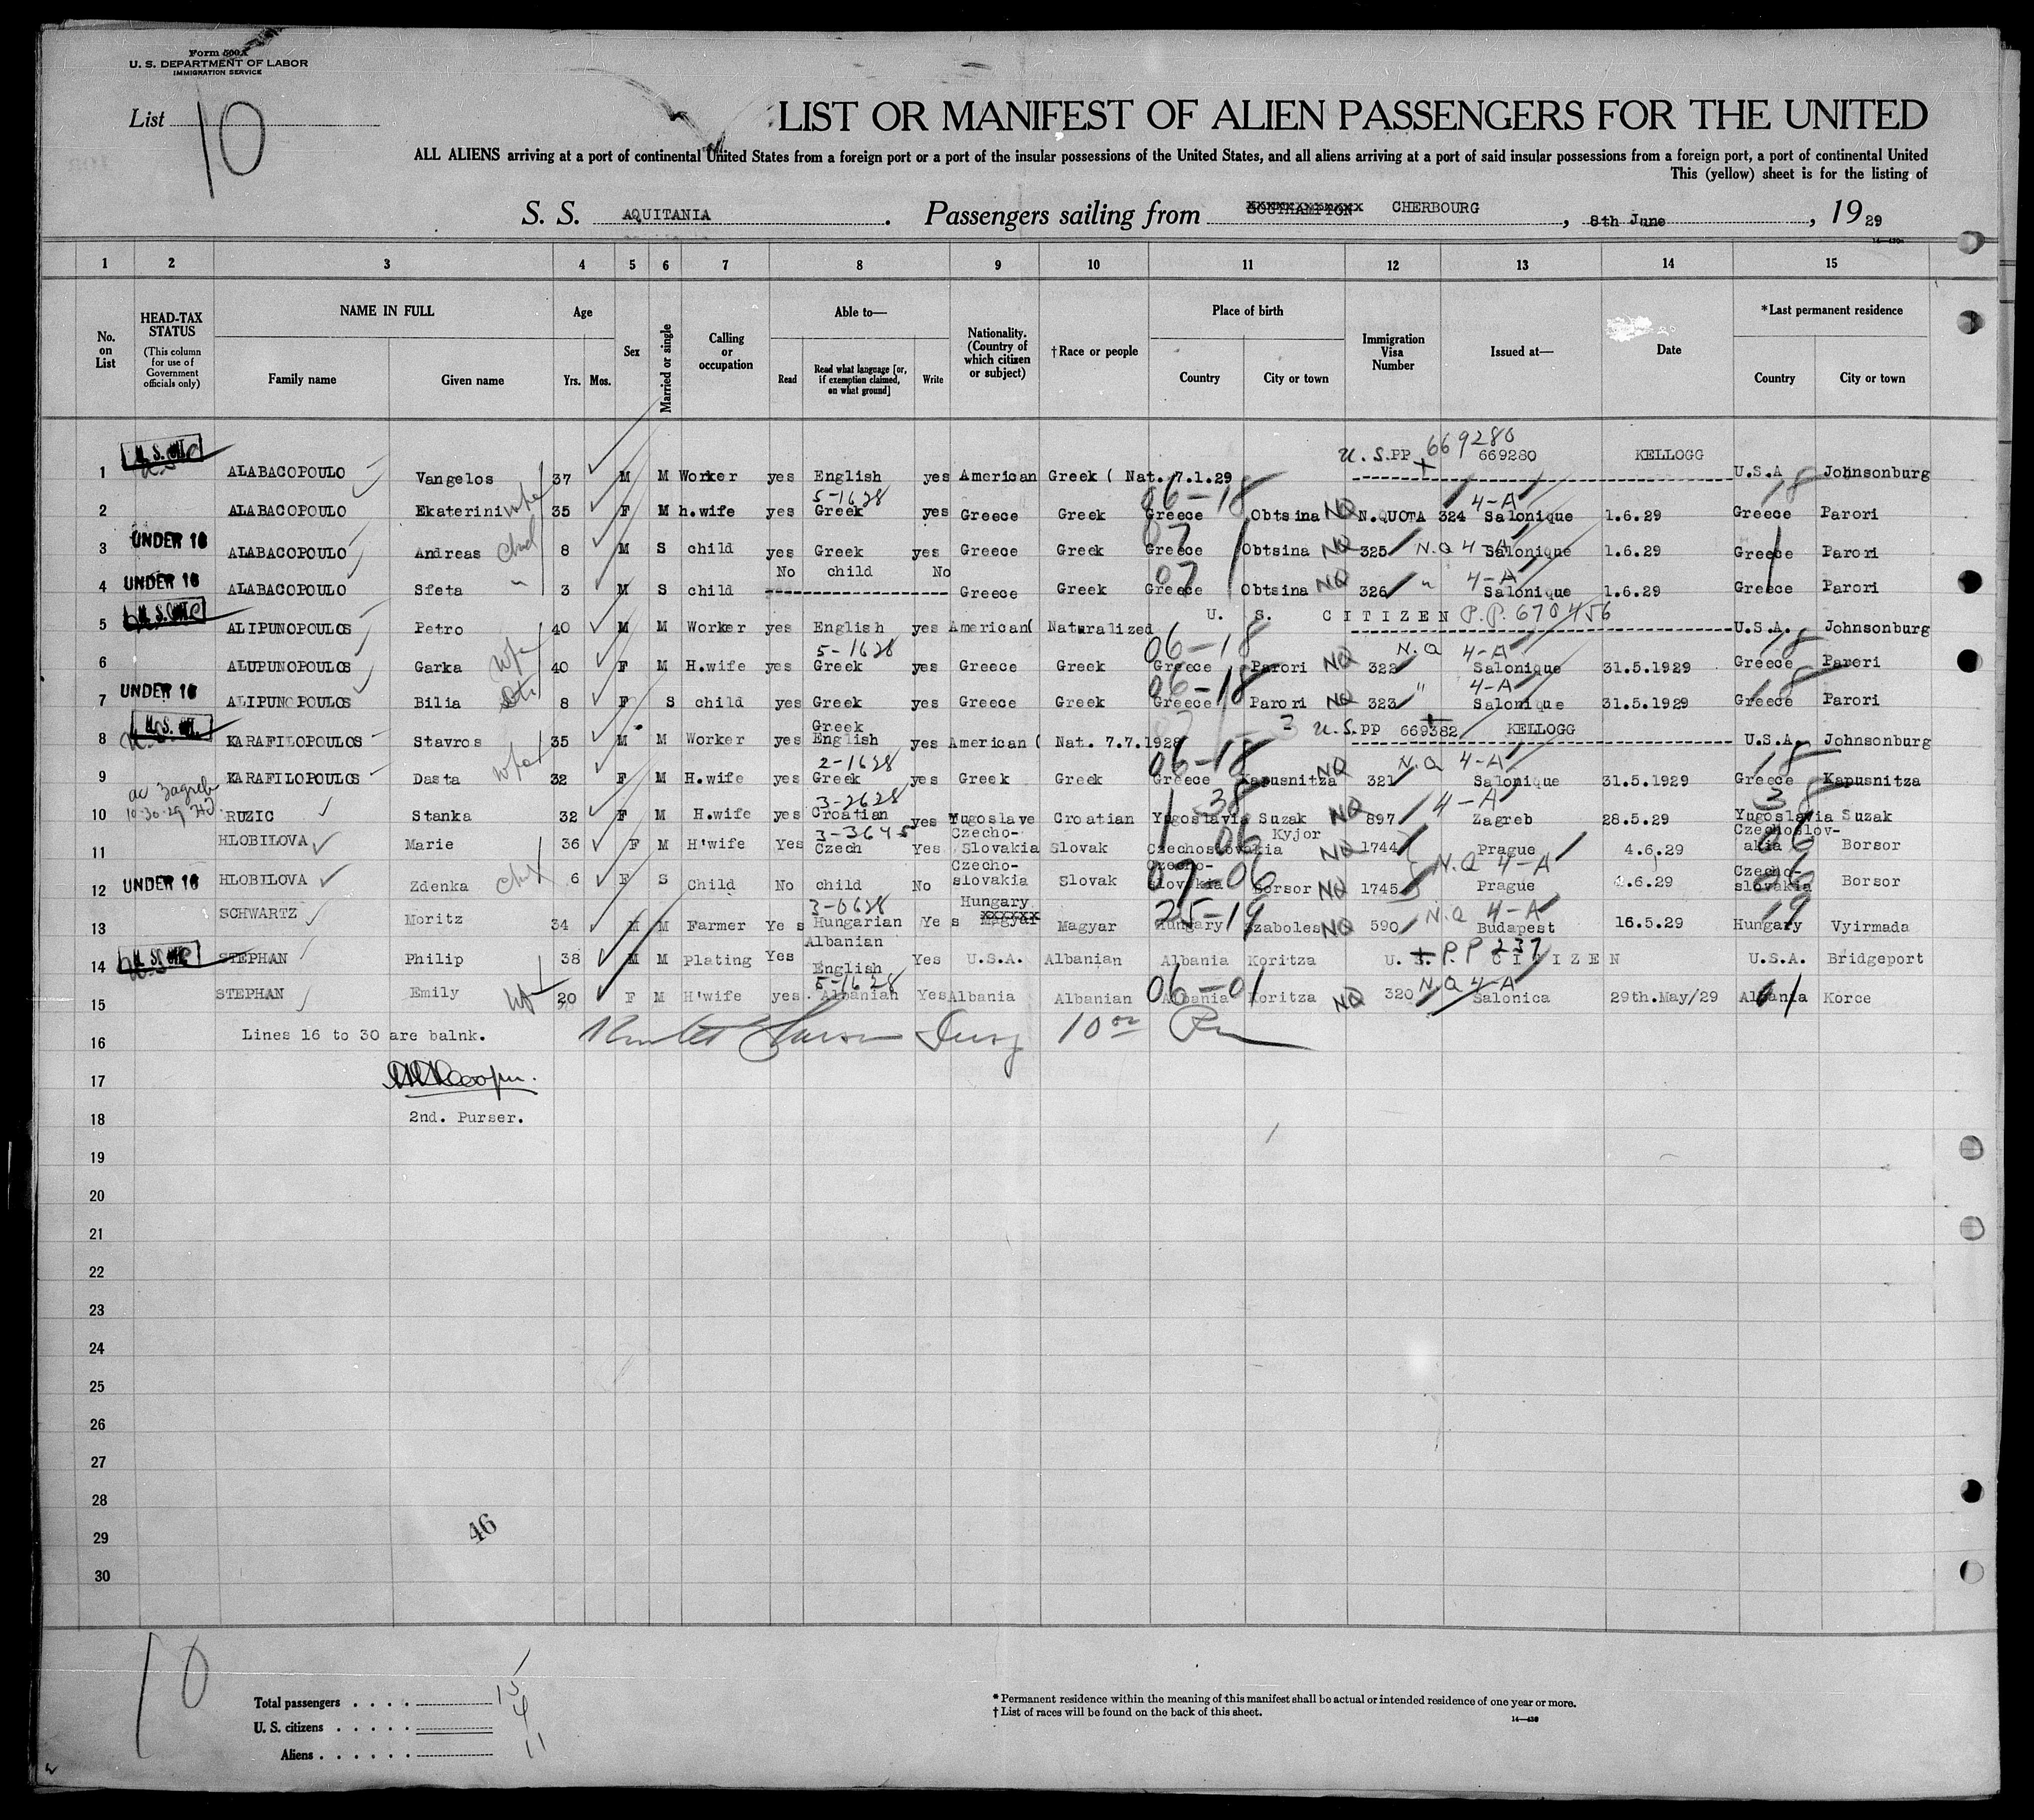 Form 500A
U. S. DEPARTMENT OF LABOR
IMMIGRATION SERVICE
List 10
LIST OR MANIFEST OF ALIEN PASSENGERS FOR THE UNITED
ALL ALIENS arriving at a port of continental United States from a foreign port or a port of the insular possessions of the United States, and all aliens arriving at a port of said insular possessions from a foreign port, a port of continental United
This (yellow) sheet is for the listing of
S. S. AQUITANIA . Passengers sailing from SOUTHAMPTON CHERBOURG , 8th June , 19 29
1 2 3 4 5 6 7 8 9 10 11 12 13 14 15
No. on List
HEAD-TAX STATUS (This column for use of Government officials only)
NAME IN FULL Family name Given name
Age Yrs. Mos.
Sex
Married or single
Calling or occupation
Able to— Read Read what language [or, if exemption claimed, on what ground] Write
Nationality. (Country of which citizen or subject)
†Race or people
Place of birth Country City or town
Immigration Visa Number
Issued at—
Date
*Last permanent residence Country City or town
1 ALABACOPOULO Vangelos 37 M M Worker yes English yes American Greek ( Nat. 7.1.29 U.S.PP 669280 669280 KELLOGG U.S.A Johnsonburg
2 ALABACOPOULO Ekaterini wife 35 F M h.wife yes 5-1628 Greek yes Greece Greek 06-18 Greece Obtsina NQ N.QUOTA 324 4-A Salonique 1.6.29 18 Greece Parori
3 UNDER 16 ALABACOPOULO Andreas child 8 M S child yes Greek yes Greece Greek 07 Greece Obtsina NQ 325 N.Q 4-A Salonique 1.6.29 Greece Parori
4 UNDER 16 ALABACOPOULO Sfeta " 3 M S child No child No Greece Greek 07 Greece Obtsina NQ 326 " 4-A Salonique 1.6.29 Greece Parori
5 ALIPUNOPOULOS Petro 40 M M Worker yes English yes American( Naturalized U. S. CITIZEN P.P. 670456 U.S.A. Johnsonburg
6 ALUPUNOPOULOS Garka wife 40 F M H.wife yes 5-1628 Greek yes Greece Greek 06-18 Greece Parori NQ 322 N.Q 4-A Salonique 31.5.1929 18 Greece Parori
7 UNDER 16 ALIPUNOPOULOS Bilia 8 F S child yes Greek yes Greece Greek 06-18 Greece Parori NQ 323 " 4-A Salonique 31.5.1929 18 Greece Parori
8 KARAFILOPOULOS Stavros 35 M M Worker yes Greek English yes American ( Nat. 7.7.1928 U.S.PP 669382 KELLOGG U.S.A. Johnsonburg
9 KARAFILOPOULOS Dasta wife 32 F M H.wife yes 2-1628 Greek yes Greek Greek 06-18 Greece Kapusnitza NQ 321 N.Q 4-A Salonique 31.5.1929 18 Greece Kapusnitza
10 Zagreb 10-30-29 RUZIC Stanka 32 F M H.wife yes 3-2628 Croatian yes Yugoslave Croatian 38 Yugoslavia Suzak NQ 897 4-A Zagreb 28.5.29 38 Yugoslavia Suzak
11 HLOBILOVA Marie 36 F M H'wife Yes 3-3645 Czech Yes Czecho-Slovakia Slovak 06 Czechoslovakia Kyjor NQ 1744 Prague 4.6.29 06 Czechoslov-akia Borsor
12 UNDER 16 HLOBILOVA Zdenka 6 F S Child No child No Czecho-slovakia Slovak 07-06 Czecho-slovakia Borsor NQ 1745 N.Q 4-A Prague 4.6.29 06 Czecho-slovakia Borsor
13 SCHWARTZ Moritz 34 M M Farmer Yes 3-0628 Hungarian Yes Hungary Magyar Magyar 25-19 Hungary Szaboles NQ 590 N.Q 4-A Budapest 16.5.29 19 Hungary Vyirmada
14 STEPHAN Philip 38 M M Plating Yes Albanian English Yes U.S.A. Albanian Albania Koritza U. S. P.P 237 CITIZEN U.S.A. Bridgeport
15 STEPHAN Emily 20 F M H'wife yes. 5-1628 Albanian Yes Albania Albanian 06-01 Albania Koritza NQ 320 N.Q 4-A Salonica 29th.May/29 01 Albania Korce
16 Lines 16 to 30 are balnk.
17
18 2nd. Purser.
19
20
21
22
23
24
25
26
27
28
29 46
30
10
Total passengers . . . . 15
U. S. citizens . . . . . 4
Aliens . . . . . . 11
* Permanent residence within the meaning of this manifest shall be actual or intended residence of one year or more.
† List of races will be found on the back of this sheet.
14—430